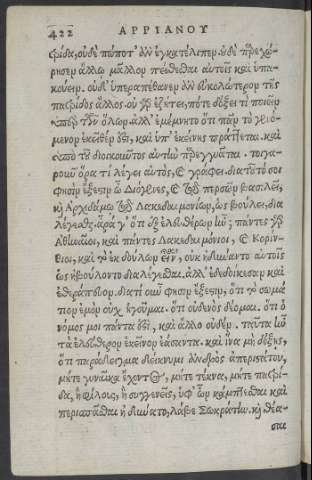 422 ΑΡΡΙΑΝΟΥ
τρίδα, οὐδὲ πώποτ' ἂν ἐγκατέλιπεν. οὐδὲ παρεχώ-
ρησεν ἄλλῳ μᾶλλον πείθεσθαι αὐτοῖς καὶ ὑπα-
κούειν. οὐδ' ὑπεραπέθανεν ἂν εὐκολώτερον τῆς
πατρίδος ἄλλος. οὐ γὰρ ἐζήτει, πότε δόξει τὶ ποιεῖν
ὑπὲρ τῶν ὅλων. ἀλλ' ἐμέμνητο ὅτι πᾶν τὸ γενό-
μενον ἐκεῖθέν ἐστι, καὶ ὑπ' ἐκείνης πράττεται. καὶ
ὑπὸ τοῦ διοικοῦντος αὐτὴν πρεγγυᾶται. τοιγα-
ροῦν ὅρα τί λέγει αὐτὸς, καὶ γράφει. διὰ τοῦτό σοι
φησὶν ἔξεστιν ὦ Διόγενες, καὶ τῷ περσῶν βασιλεῖ,
κὴ Ἀρχιδάμῳ τῷ Λακεδαιμονίων, ὡς βούλει, δια
λέγεσθαι. ἆρά γ' ὅτι ἐξ ἐλευθέρων ἦν; πάντες γὰρ
Ἀθηναῖοι, καὶ πάντες Λακεδαιμόνιοι, καὶ Κορίν-
θιοι, καὶ τὸ ἐκ δούλων εἶναι, οὐκ ἠδύναντο αὐτοῖς
ὡς ἠβούλοντο διαλέγεσθαι. ἀλλ' ἐδεδοίκεσαν καὶ
ἐθεράπευον. διατί οὖν φησὶν ἔξεστιν, ὅτι τὸ σωμά
τιον ἐμὸν οὐχ ἡγοῦμαι. ὅτι οὐδενὸς δέομαι. ὅτι ὁ
νόμος μοι πάντα ἐστὶ, καὶ ἄλλο οὐδέν. ταῦτα ἦν
τὰ ἐλεύθερον ἐκεῖνον ἐάσαντα. καὶ ἵνα μὴ δόξῃς,
ὅτι παράδειγμα δείκνυμι ἀνδρὸς ἀπεριστάτου,
μήτε γυναῖκα ἔχοντος, μήτε τέκνα, μήτε πατρί-
δα, ἢ φίλους, ἢ συγγενεῖς, ὑφ' ὧν κάμπτεσθαι καὶ
περισπᾶσθαι ἠδύνατο, λάβε Σωκράτην. κὴ θέα-
σαι